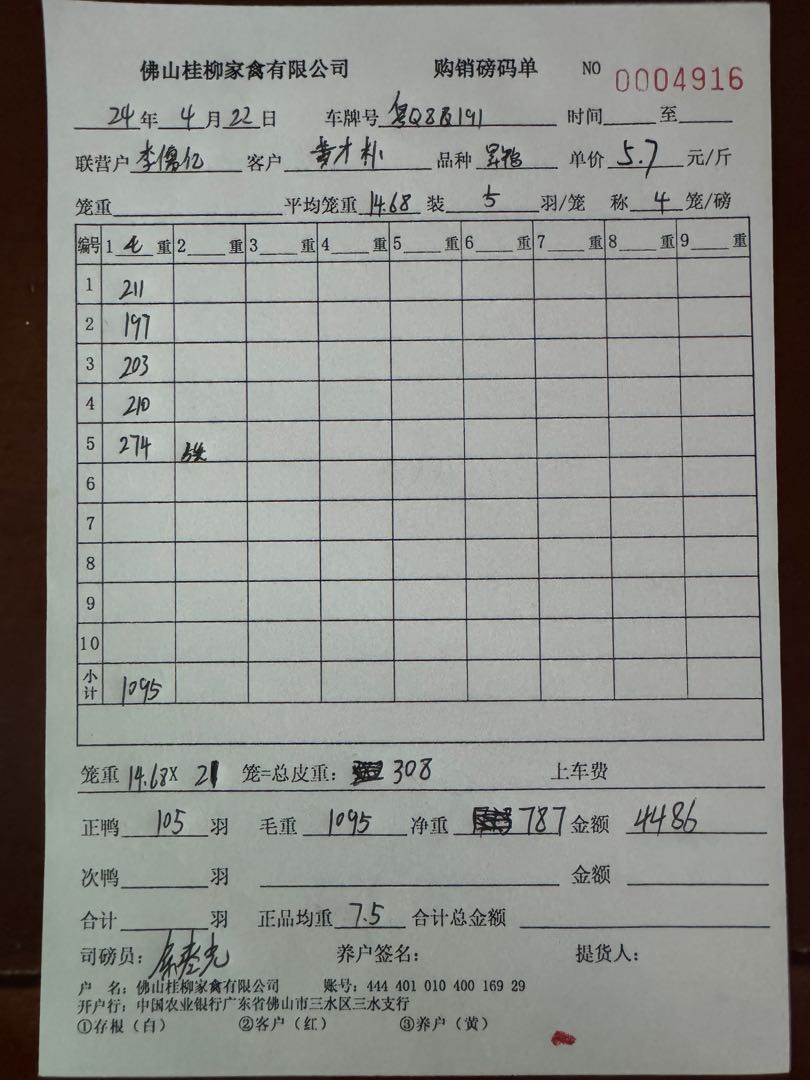 佛山桂柳家禽有限公司 购销磅码单 NO 0004916
24年4月22日 车牌号 粤Q8B191 时间 至
联营户 李儒亿 客户 黄才朴 品种 单价 5.7 元/斤
笼重 平均笼重 14.68 装 5 羽/笼 称 4 笼/磅
编号 1 毛 重 2 重 3 重 4 重 5 重 6 重 7 重 8 重 9 重
1 211
2 197
3 203
4 210
5 274 5笼
6
7
8
9
10
小计 1095
笼重 14.68X 21 笼=总皮重: 308 上车费
正鸭 105 羽 毛重 1095 净重 787 金额 4486
次鸭 羽 金额
合计 羽 正品均重 7.5 合计总金额
司磅员: 养户签名: 提货人:
户 名: 佛山桂柳家禽有限公司 账号: 444 401 010 400 169 29
开户行: 中国农业银行广东省佛山市三水区三水支行
①存根(白) ②客户(红) ③养户(黄)